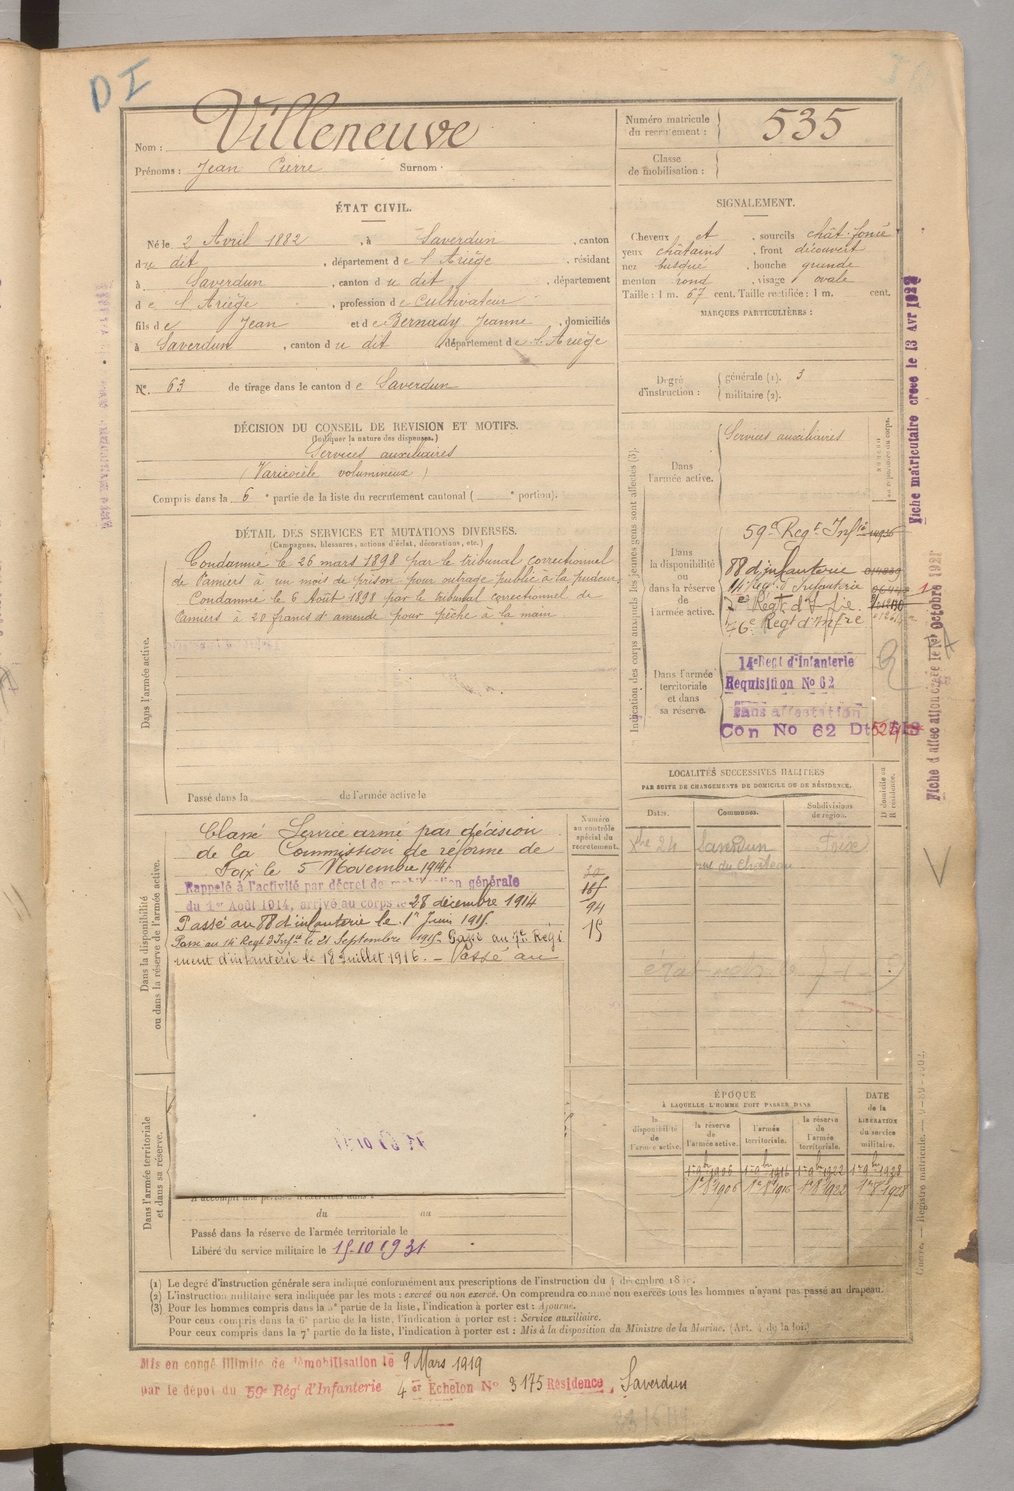 D I
Nom : Villeneuve
Prénoms : Jean Pierre Surnom :
Numéro matricule du recrutement : 535
Classe de mobilisation :
ÉTAT CIVIL.
Né le 2 Avril 1882, à Saverdun, canton
du dit, département de l'Ariège, résidant
à Saverdun, canton du dit, département
de l'Ariège, profession de Cultivateur
fils de Jean et de Bernady Jeanne, domiciliés
à Saverdun, canton du dit, département de l'Ariège
N° 63 de tirage dans le canton de Saverdun
SIGNALEMENT.
Cheveux et, sourcils chât. foncé
yeux châtains, front découvert
nez busqué, bouche grande
menton rond, visage ovale
Taille : 1 m. 67 cent. Taille rectifiée : 1 m. cent.
MARQUES PARTICULIÈRES :
Degré d'instruction : générale (1). 3
militaire (2).
DÉCISION DU CONSEIL DE REVISION ET MOTIFS.
(Indiquer la nature des dispenses.)
Services auxiliaires
(Varicocèle volumineux)
Compris dans la 6e partie de la liste du recrutement cantonal ( e portion).
DÉTAIL DES SERVICES ET MUTATIONS DIVERSES.
(Campagnes, blessures, actions d'éclat, décorations, etc.)
Dans l'armée active.
Condamné le 26 mars 1898 par le tribunal correctionnel
de Pamiers à un mois de prison pour outrage public à la pudeur
Condamné le 6 Août 1898 par le tribunal correctionnel de
Pamiers à 20 francs d'amende pour pêche à la main
Passé dans la de l'armée active le
Indication des corps auxquels les jeunes gens sont affectés (3).
Dans l'armée active.
Services auxiliaires
Dans la disponibilité ou dans la réserve de l'armée active.
59e Regt Inftie
88 d'infanterie
14e Regt d'Infanterie
7e Regt d'Inf-ie
6e Regt d'Infre
Dans l'armée territoriale et dans sa réserve.
14e Regt d'Infanterie
Requisition No 62
Sans affectation
Con No 62 Dt
Fiche matriculaire créée le 13 Avr 1922
Fiche d'affectation créée le 1er octobre 1921
LOCALITÉS SUCCESSIVES HABITÉES
PAR SUITE DE CHANGEMENTS DE DOMICILE OU DE RÉSIDENCE.
Dates. Communes. Subdivisions de région. D domicile ou R résidence.
Xbre 24 Saverdun Foix
rue du Château
Numéro au contrôle spécial du recrutement.
94
15
Dans la disponibilité ou dans la réserve de l'armée active.
Classé Service armé par décision
de la Commission de réforme de
Foix le 5 Novembre 1914
Rappelé à l'activité par décret de mobilisation générale
du 1er Août 1914, arrivé au corps le 28 décembre 1914
Passé au 88 d'infanterie le 1er Juin 1915.
Passé au 14e Regt d'Infie le 21 Septembre 1915. Passé au 7e Régi
ment d'infanterie le 18 Juillet 1916. – Passé au
Dans l'armée territoriale et dans sa réserve.
A accompli une période d'exercices dans l
du au
Passé dans la réserve de l'armée territoriale le
Libéré du service militaire le 15.10 1931
ÉPOQUE
À LAQUELLE L'HOMME DOIT PASSER DANS
la disponibilité de l'armée active. la réserve de l'armée active. l'armée territoriale. la réserve de l'armée territoriale. DATE de la LIBÉRATION du service militaire.
1er 9bre 1906 1er 9bre 1916 1er 9bre 1922 1er 9bre 1928
1er 8 1906 1er 8 1916 1er 8 1922 1er 8 1928
(1) Le degré d'instruction générale sera indiqué conformément aux prescriptions de l'instruction du 4 décembre
(2) L'instruction militaire sera indiquée par les mots : exercé ou non exercé. On comprendra comme non exercés tous les hommes n'ayant pas passé au drapeau.
(3) Pour les hommes compris dans la 5e partie de la liste, l'indication à porter est : Ajourné.
Pour ceux compris dans la 6e partie de la liste, l'indication à porter est : Service auxiliaire.
Pour ceux compris dans la 7e partie de la liste, l'indication à porter est : Mis à la disposition du Ministre de la Marine. (Art. 4 de la loi.)
Mis en congé illimité de démobilisation le 9 Mars 1919
par le dépôt du 59e Régt d'Infanterie 4e Echelon No 3175 Résidence, Saverdun